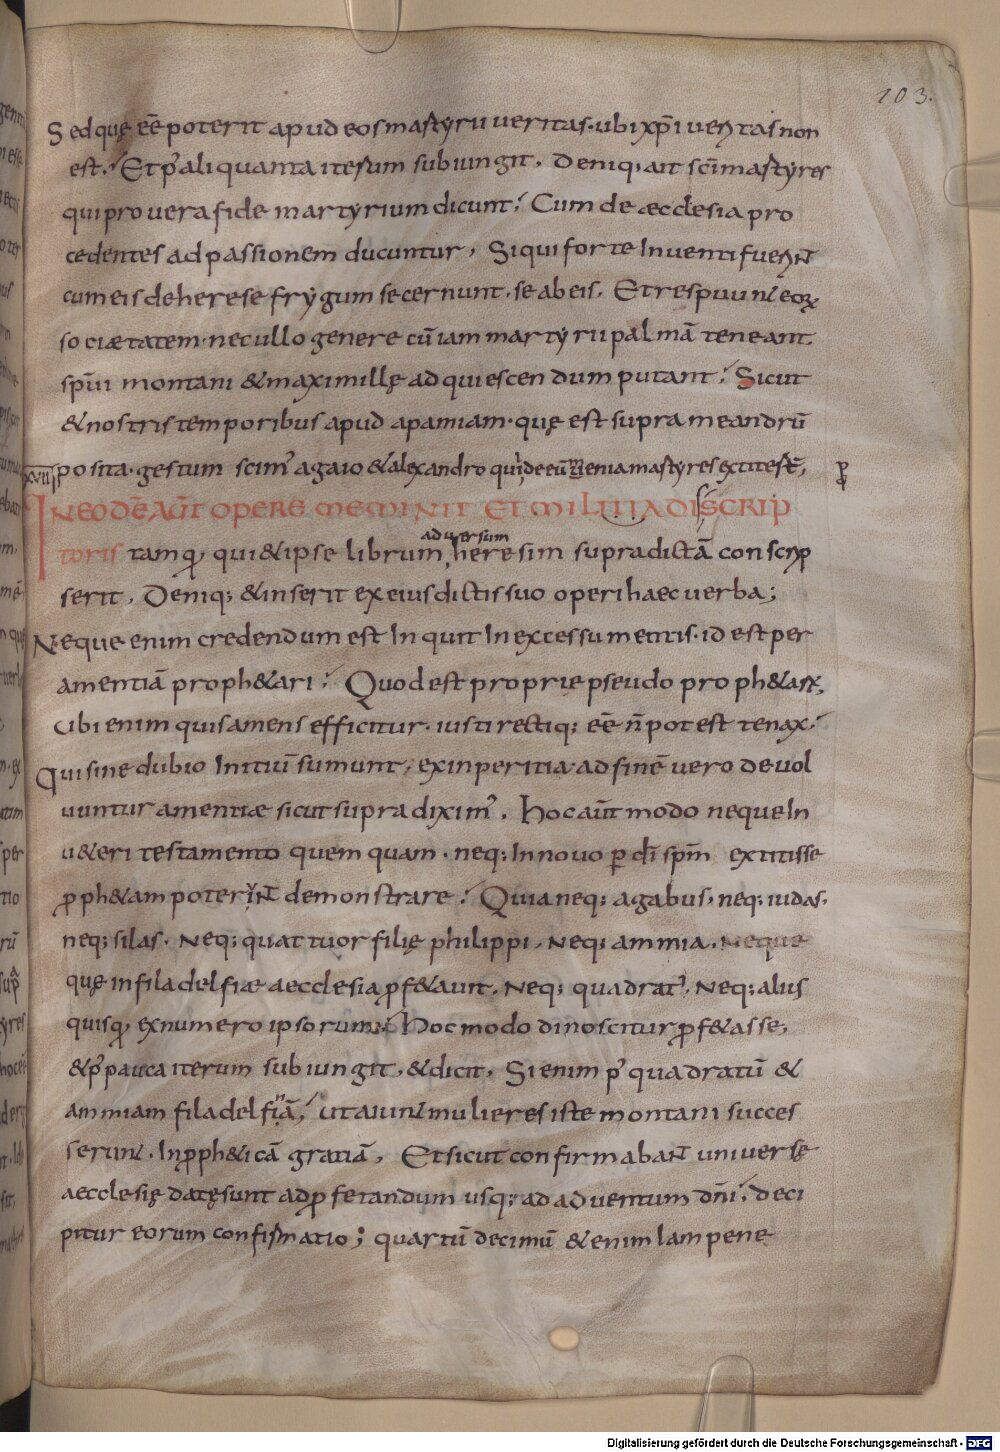 103.
Sed quę eē poterit apud eos martyrii veritas. ubi xp̄i veritas non
est. Et p̓ aliquanta iterum subiungit. Deniq; ait sc̄i martyres
qui pro vera fide martyrium dicunt. Cum de æcclesia pro
cedentes ad passionem ducuntur, Si qui forte Inventi fuerNt
cum eis de herese frygum secernunt. se ab eis. Et respuunt eoꝝ
sociætatem. nec ullo genere cū iam martyrii palmā teneant.
sp̄ui montani & maximillę adquiescendum putant. Sicut
& nostris temporibus apud apamiam. quę est supra meandrū
posita. gestum scim̓ a gaio & alexandro qui de eumenia martyres extiter̄,
xvii
IN EODĒ AŪT OPERE MEMINIT ET MILTIADI SCRIP
toris tamq̄, qui & ipse librum adversum heresim supradictā conscrip
serit. Deniq; & inserit ex eius dictis suo operi haec verba;
Neque enim credendum est Inquit In excessu mentis. id est per
amentiā proph&ari. Quod est proprię pseudo proph&aꝝ,
Ubi enim quis amens efficitur. iusti rectiq; eē n̄ potest tenax.
Qui sine dubio Initiū sumunt, ex inperitia. ad finē vero devol
vuntur amentiæ sicut supra dixim̓. hoc aūt modo neque In
u&eri testamento quemquam. neq; In novo ꝑ dī sp̄m extitisse
ꝓph&am poteriNt demonstrare. Quia neq; agabus. neq; iudas.
neq; silas. Neq; quattuor filię philippi. Neq; ammia. Neque
quę in filadelfiæ aecclesia ꝓf&avit. Neq; quadrat̓. Neq; alius
quisq̄, ex numero ipsorum. Hoc modo dinoscitur ꝓf&asse,
& p̓ pauca iterum subiungit. & dicit. Si enim p̓ quadratū &
ammiam filadelfinā, ut aiunt mulieres iste montani succes
serunt. In ꝓph&icā gratiā. Et sicut confirmabaNt universę
aecclesię datę sunt ad ꝓferandum usq; ad adventum dn̄i. deci
pitur eorum confirmatio; quartū decimū & enim Iam pene
Digitalisierung gefördert durch die Deutsche Forschungsgemeinschaft - DFG